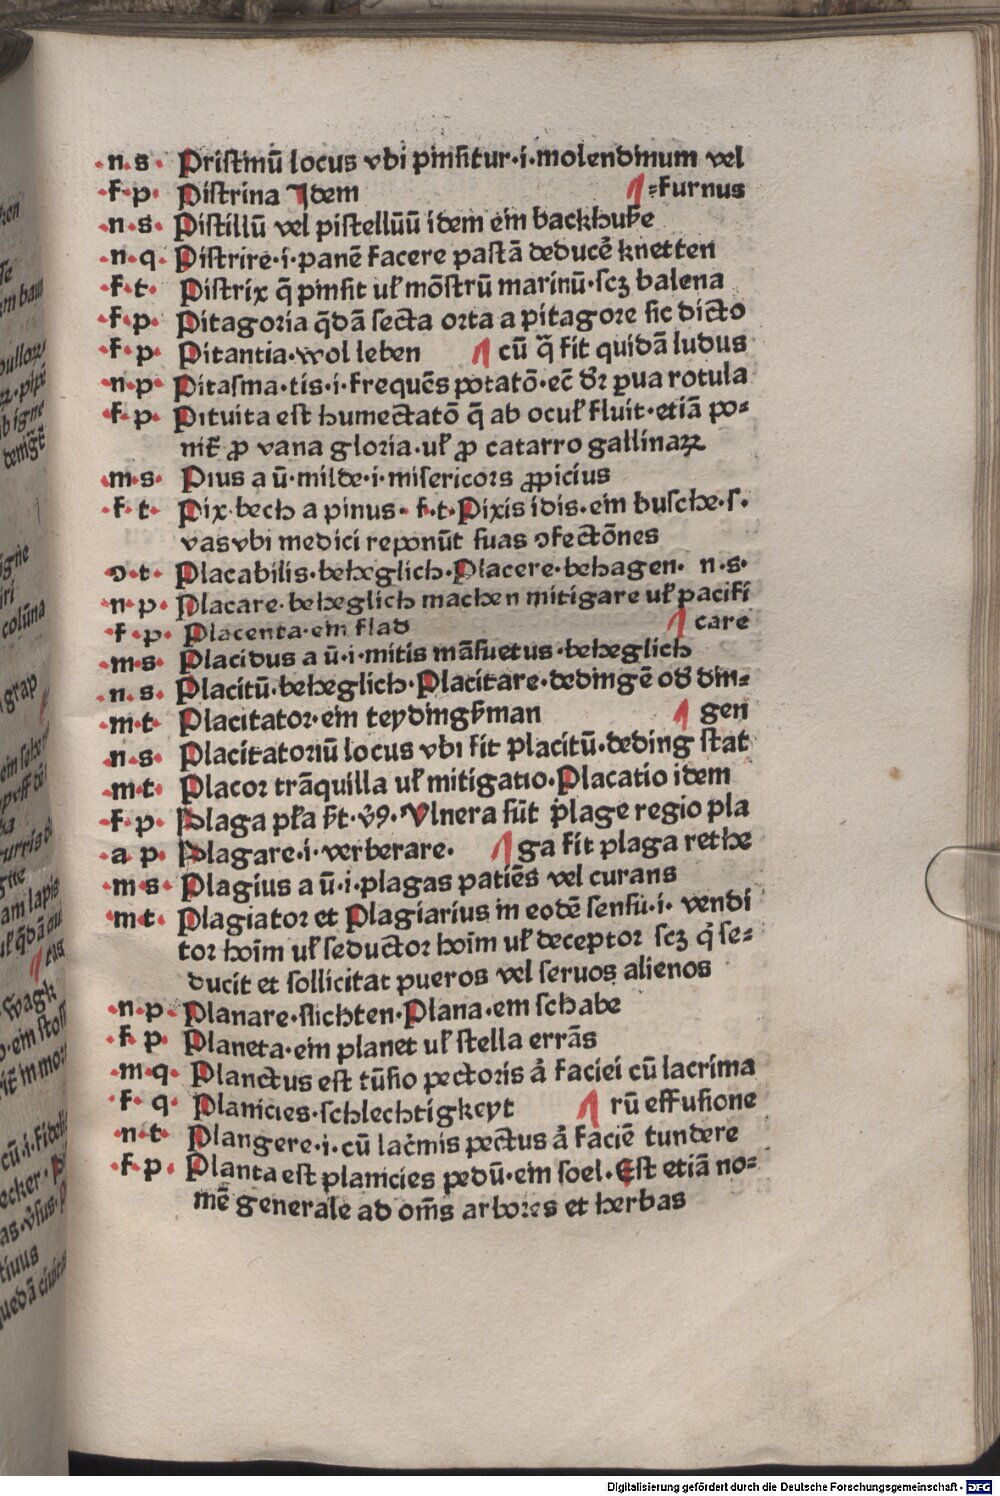 ·n·s· Pristinū locus vbi pinsitur·i·molendinum vel
·f·p· Pistrina Idem ¶ =furnus
·n·s· Pistillū vel pistellūū idem ein backhuße
·n·q· Pistrire·i·panē facere pastā deducē knetten
·f·t· Pistrix q̄ pinsit uł mōstrū marinū·scz balena
·f·p· Pitagoria q̄dā secta orta a pitagore sic dicto
·f·p· Pitantia·wol leben ¶ cū q̄ fit quidā ludus
·n·p· Pitasma·tis·i·frequēs potatō·ec̄ dr̄ pua rotula
·f·p· Pituita est humectatō q̄ ab ocuł fluit·etiā po=
nit̄ ꝓ vana gloria·uł ꝓ catarro gallinaꝝ
·m·s· Pius a ū·milde·i·misericors ꝓpicius
·f·t· Pix·bech a pinus· f·t·Pixis idis·ein busche·s·
vas vbi medici reponūt suas ↄfectōnes
·ↄ·t· Placabilis·beheglich·Placere·behagen· n·s·
·n·p· Placare·beheglich machen mitigare uł pacifi
·f·p· Placenta·ein flad ¶ care
·m·s· Placidus a ū·i·mitis māsuetus·beheglich
·n·s· Placitū·beheglich·Placitare·dedingē od̄ din=
·m·t· Placitator·ein teydingßman ¶ gen
·n·s· Placitatoriū locus vbi fit placitū·deding stat
·m·t· Placor trāquilla uł mitigatio·Placatio idem
·f·p· Plaga pła h̄t·v̄9·Vlnera sūt plage regio pla
·a p· Plagare·i·verberare· ¶ ga fit plaga rethe
·m·s· Plagius a ū·i·plagas patiēs vel curans
·m·t· Plagiator et Plagiarius in eodē sensu·i· vendi
tor hoīm uł seductor hoīm uł deceptor scz q̇ se=
ducit et sollicitat pueros vel seruos alienos
·n·p· Planare·slichten·Plana·em schabe
·f·p· Planeta·ein planet uł stella errās
·m·q· Planctus est tūsio pectoris a̓ faciei cū lacrima
·f·q· Planicies·schlechtigkeyt ¶ rū effusione
·n·t· Plangere·i·cū lac̓mis pectus a̓ faciē tundere
·f·p· Planta est planicies pedū·ein soel·Est etiā no=
mē generale ad om̄s arbores et herbas
Digitalisierung gefördert durch die Deutsche Forschungsgemeinschaft · DFG